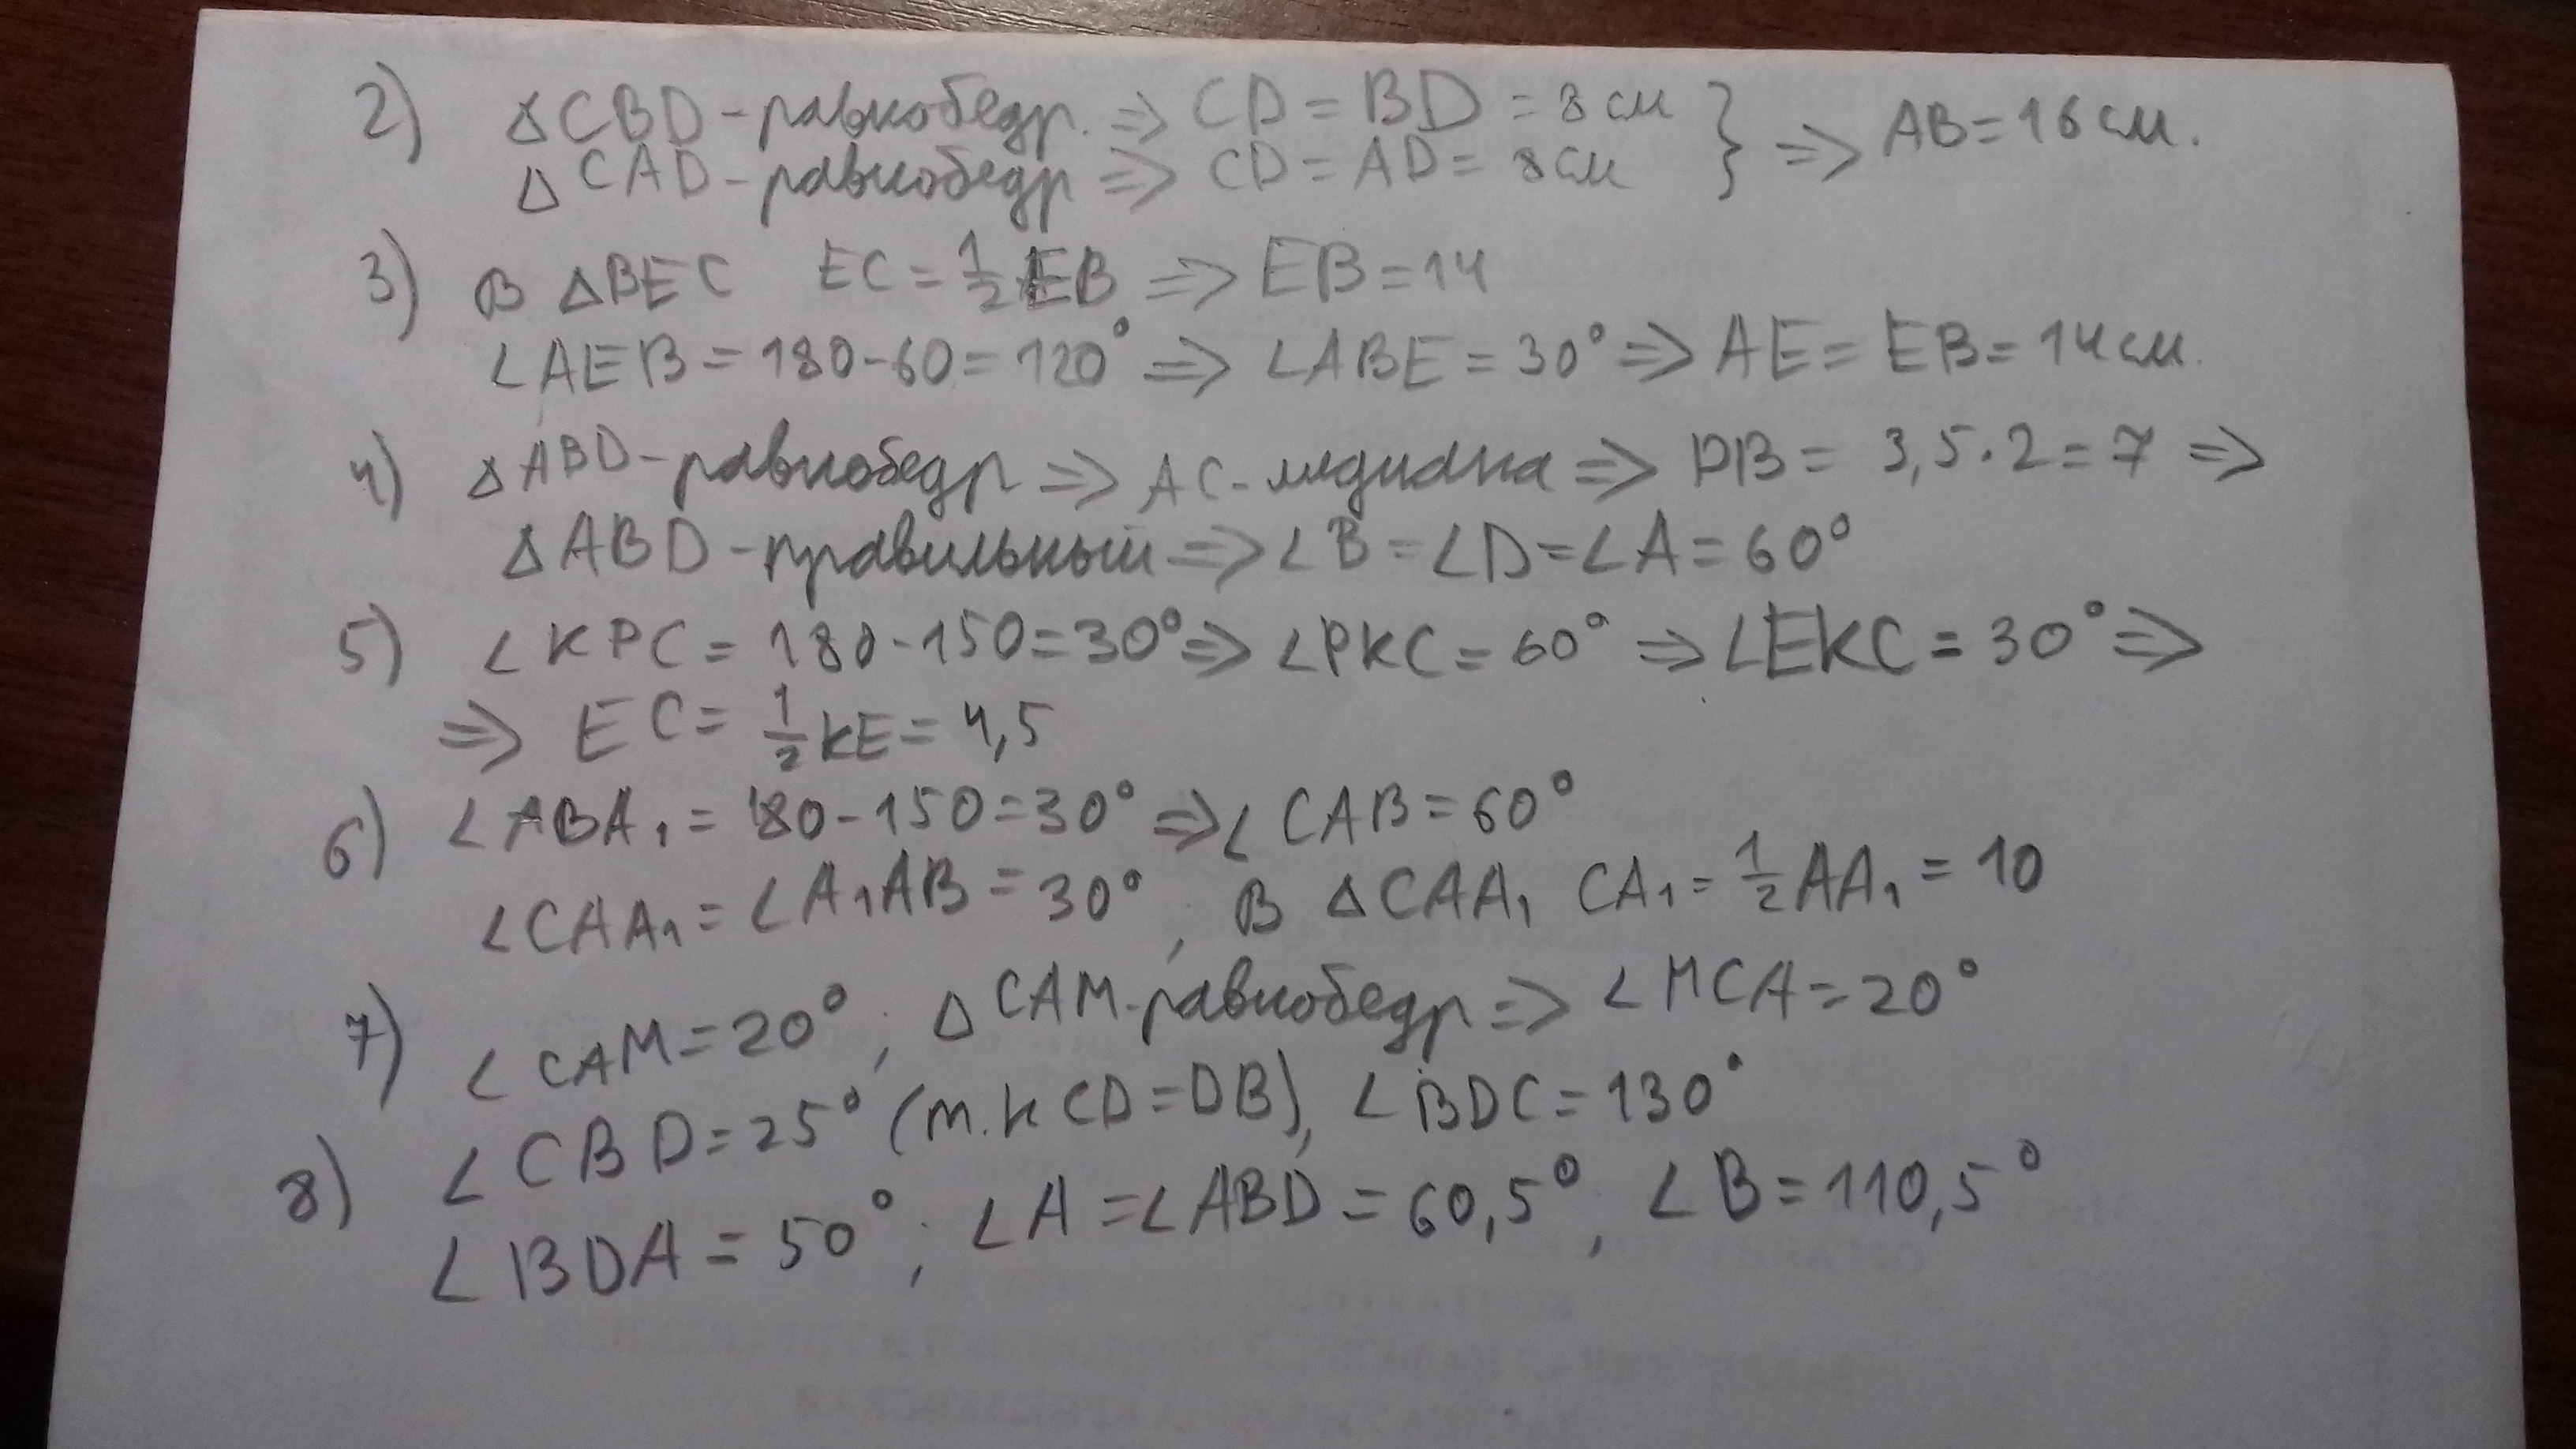 2) ΔCBD-равнобедр. ⇒ CD = BD = 8 см } ⇒ AB = 16 см.
ΔCAD-равнобедр ⇒ CD = AD = 8 см
3) В ΔBEC EC = 1/2 EB ⇒ EB = 14
∠AEB = 180-60 = 120° ⇒ ∠ABE = 30° ⇒ AE = EB = 14 см.
4) ΔABD-равнобедр ⇒ AC-медиана ⇒ DB = 3,5·2 = 7 ⇒
ΔABD-правильный ⇒ ∠B = ∠D = ∠A = 60°
5) ∠KPC = 180-150 = 30° ⇒ ∠PKC = 60° ⇒ ∠EKC = 30° ⇒
⇒ EC = 1/2 KE = 4,5
6) ∠ABA₁ = 180-150 = 30° ⇒ ∠CAB = 60°
∠CAA₁ = ∠A₁AB = 30°, В ΔCAA₁ CA₁ = 1/2 AA₁ = 10
7) ∠CAM = 20°; ΔCAM-равнобедр ⇒ ∠MCA = 20°
8) ∠CBD = 25° (т.к CD = DB), ∠BDC = 130°
∠BDA = 50°; ∠A = ∠ABD = 60,5°, ∠B = 110,5°